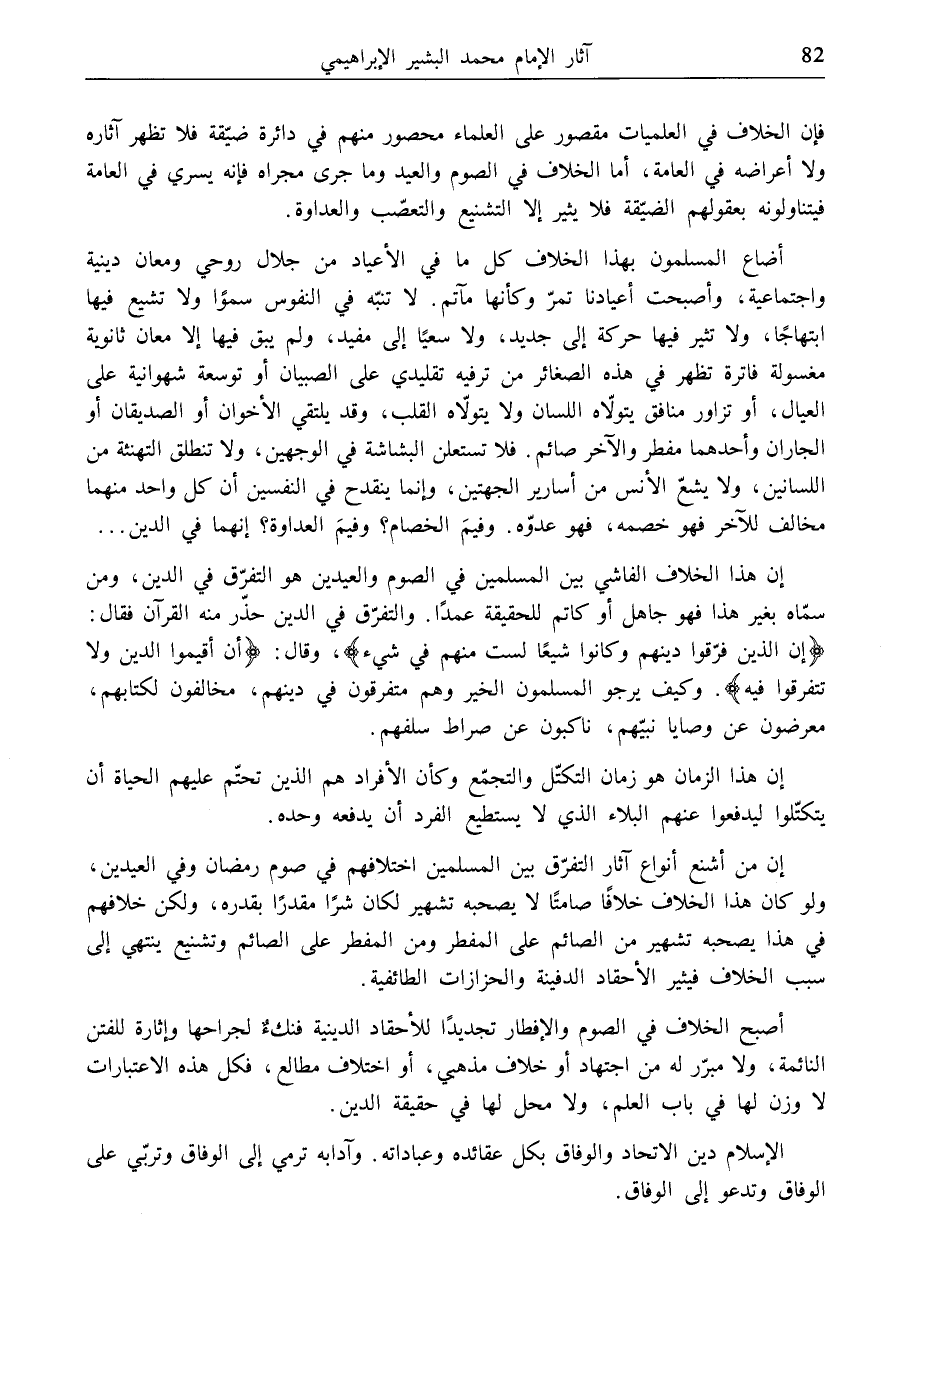 82
آثار الإمام محمد البشير الإبراهيمي
فإن الخلاف في العلميات مقصور على العلماء محصور منهم في دائرة ضيّقة فلا تظهر آثاره
ولا أعراضه في العامة، أما الخلاف في الصوم والعيد وما جرى مجراه فإنه يسري في العامة
فيتناولونه بعقولهم الضيّقة فلا يثير إلا التشنيع والتعصّب والعداوة.
أضاع المسلمون بهذا الخلاف كل ما في الأعياد من جلال روحي ومعان دينية
واجتماعية، وأصبحت أعيادنا تمرّ وكأنها مآتم. لا تنبّه في النفوس سموًا ولا تشيع فيها
ابتهاجًا، ولا تثير فيها حركة إلى جديد، ولا سعيًا إلى مفيد، ولم يبق فيها إلا معان ثانوية
مغسولة فاترة تظهر في هذه الصغائر من ترفيه تقليدي على الصبيان أو توسعة شهوانية على
العيال، أو تزاور منافق يتولّاه اللسان ولا يتولّاه القلب، وقد يلتقي الأخوان أو الصديقان أو
الجاران وأحدهما مفطر والآخر صائم. فلا تستعلن البشاشة في الوجهين، ولا تنطلق التهنئة من
اللسانين، ولا يشعّ الأنس من أسارير الجهتين، وإنما ينقدح في النفسين أن كل واحد منهما
مخالف للآخر فهو خصمه، فهو عدوّه. وفيمَ الخصام؟ وفيمَ العداوة؟ إنهما في الدين...
إن هذا الخلاف الفاشي بين المسلمين في الصوم والعيدين هو التفرّق في الدين، ومن
سمّاه بغير هذا فهو جاهل أو كاتم للحقيقة عمدًا. والتفرّق في الدين حذّر منه القرآن فقال:
﴿إن الذين فرّقوا دينهم وكانوا شيعًا لست منهم في شيء﴾، وقال: ﴿أن أقيموا الدين ولا
تتفرقوا فيه﴾. وكيف يرجو المسلمون الخير وهم متفرقون في دينهم، مخالفون لكتابهم،
معرضون عن وصايا نبيّهم، ناكبون عن صراط سلفهم.
إن هذا الزمان هو زمان التكتّل والتجمّع وكأن الأفراد هم الذين تحتّم عليهم الحياة أن
يتكتّلوا ليدفعوا عنهم البلاء الذي لا يستطيع الفرد أن يدفعه وحده.
إن من أشنع أنواع آثار التفرّق بين المسلمين اختلافهم في صوم رمضان وفي العيدين،
ولو كان هذا الخلاف خلافًا صامتًا لا يصحبه تشهير لكان شرًا مقدرًا بقدره، ولكن خلافهم
في هذا يصحبه تشهير من الصائم على المفطر ومن المفطر على الصائم وتشنيع ينتهي إلى
سبب الخلاف فيثير الأحقاد الدفينة والحزازات الطائفية.
أصبح الخلاف في الصوم والإفطار تجديدًا للأحقاد الدينية فنكءٌ لجراحها وإثارة للفتن
النائمة، ولا مبرّر له من اجتهاد أو خلاف مذهبي، أو اختلاف مطالع، فكل هذه الاعتبارات
لا وزن لها في باب العلم، ولا محل لها في حقيقة الدين.
الإسلام دين الاتحاد والوفاق بكل عقائده وعباداته. وآدابه ترمي إلى الوفاق وتربّي على
الوفاق وتدعو إلى الوفاق.